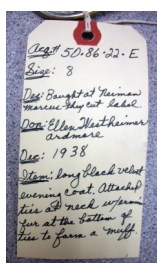 Acq# 50.86.22.E
Size: 8
Des: Bought at Neiman
Marcus. They cut label.
Don: Ellen Westheimer
Ardmore
Dec: 1938
Item: long black velvet
evening coat. Attached
ties at neck w/ermine
fur at the bottom of
ties to form a muff.